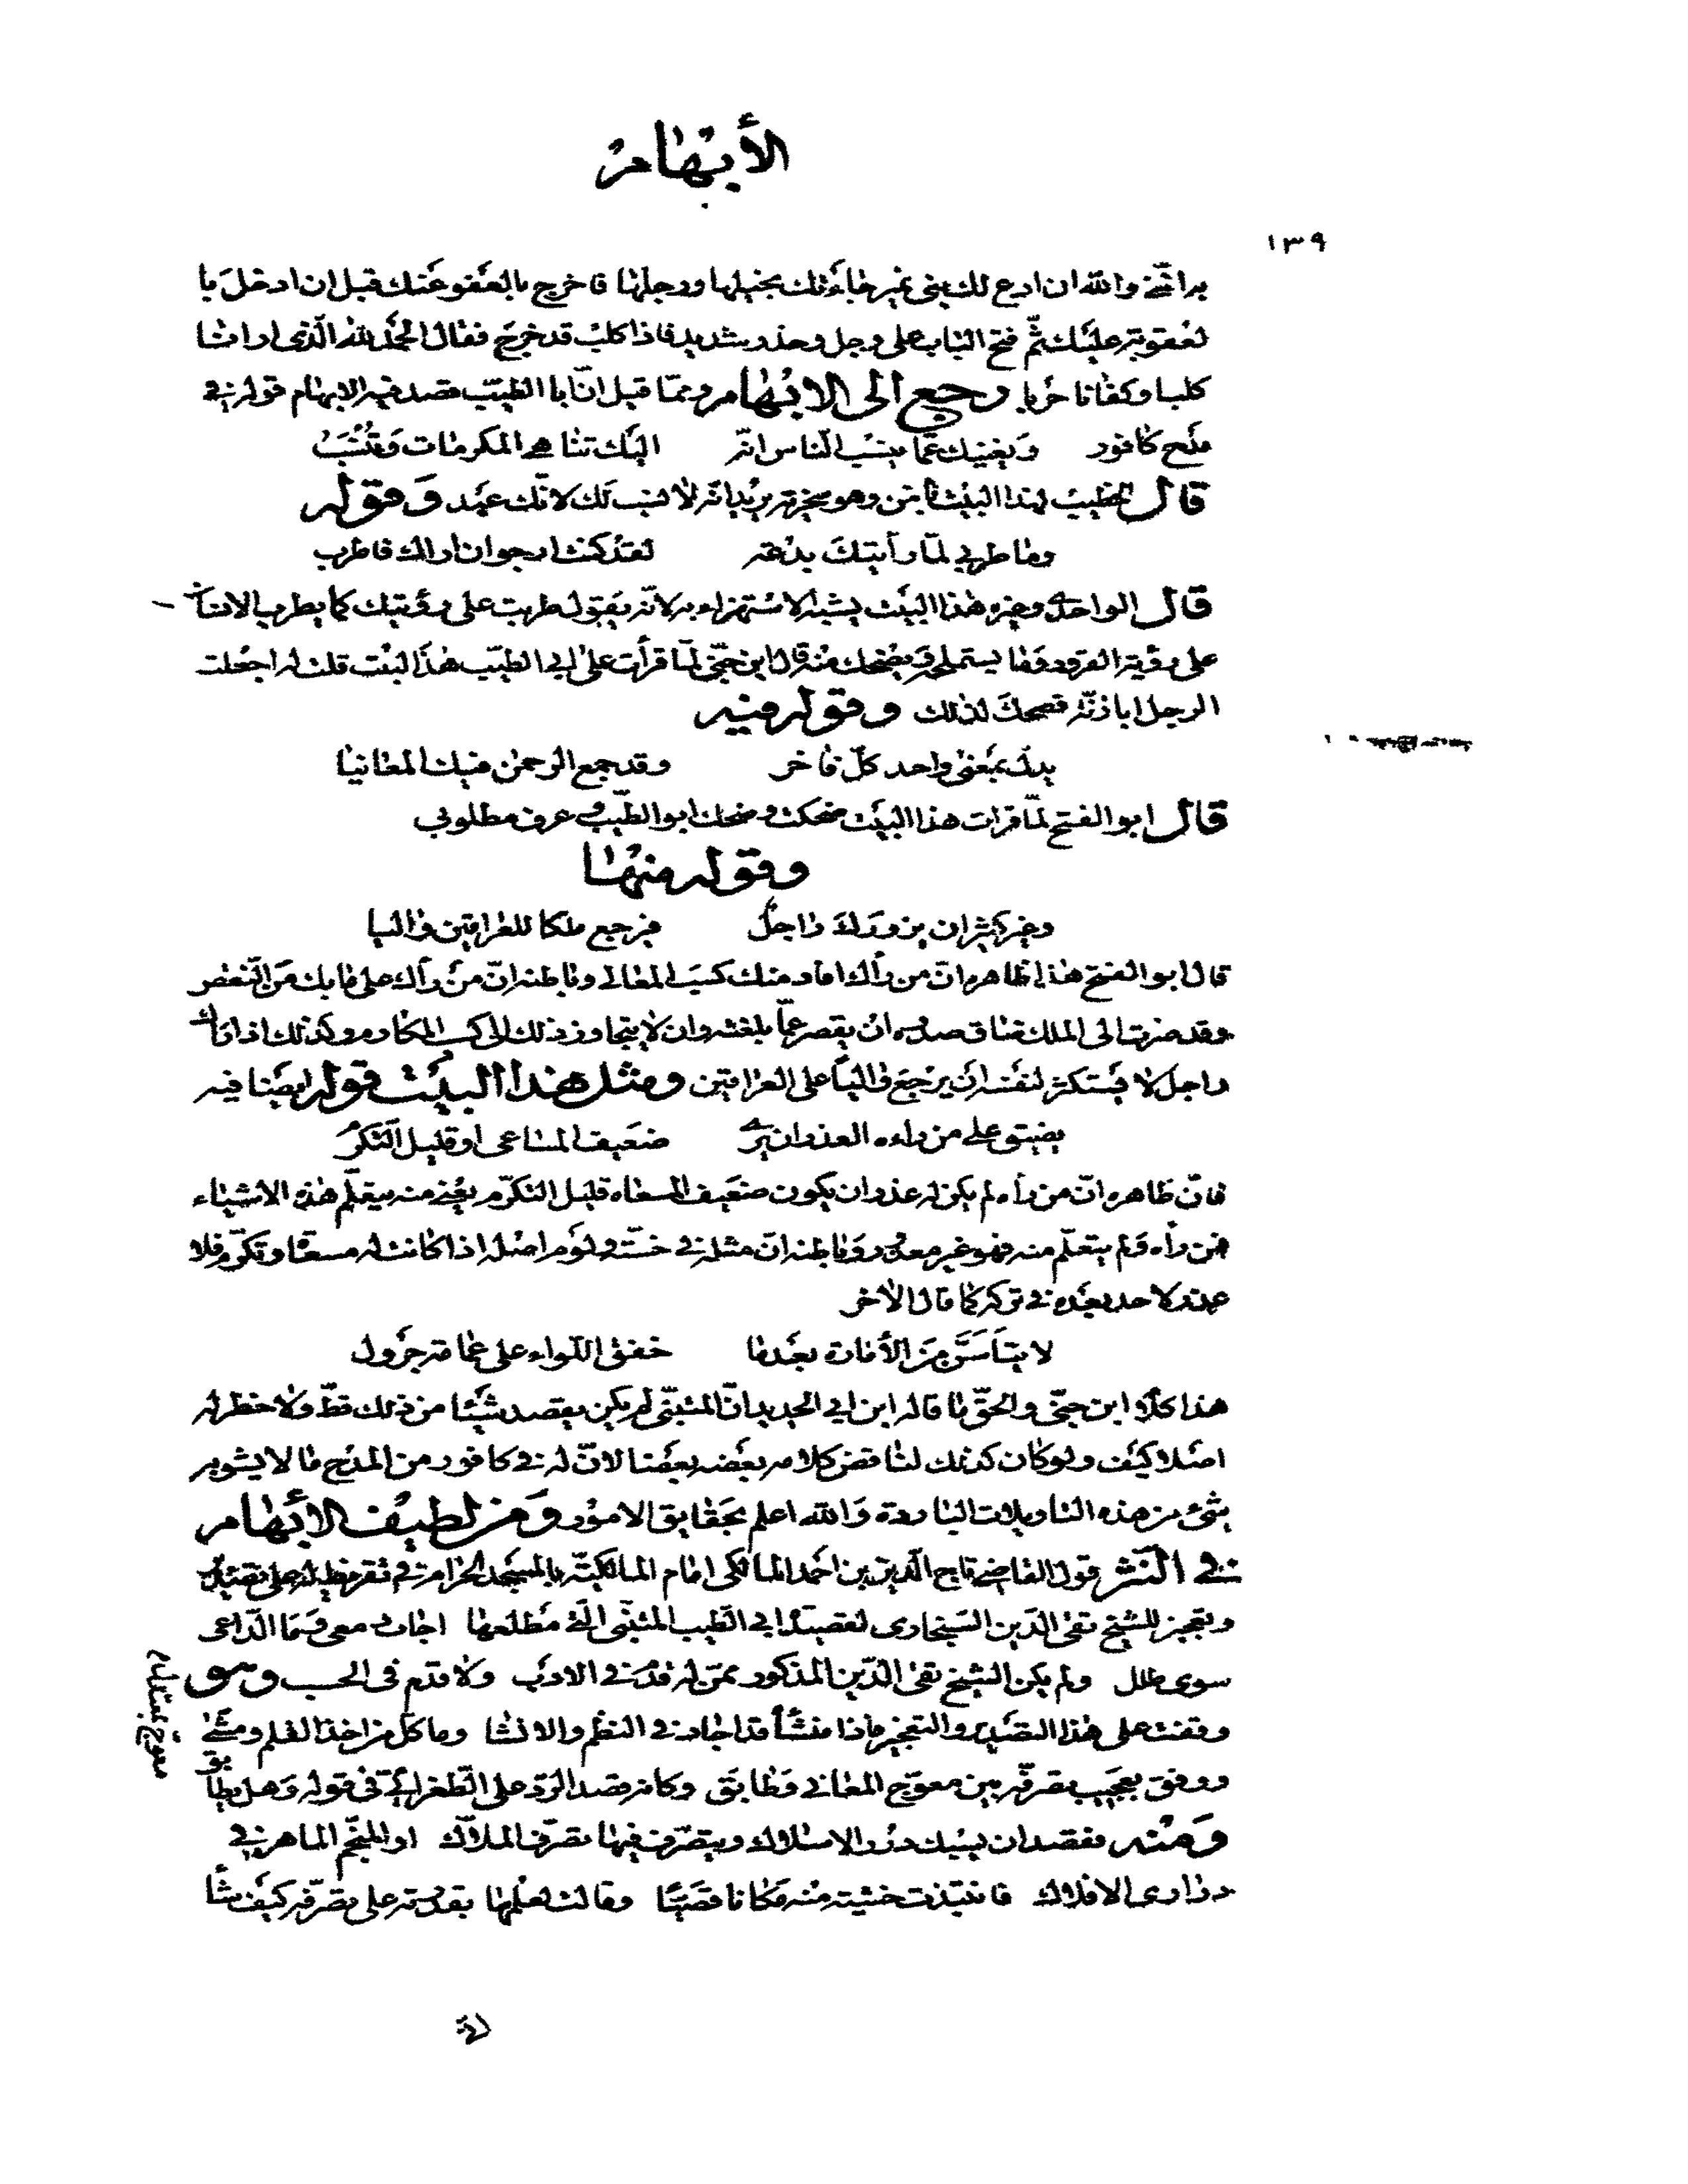 الأبهام
١٣٩
والله ان ادع لك بنى نمير جاءتك بخيلها ورجلها فاخرج بالعفو عنك قبل ان ادخل با
لعقوبة عليك ثم فتح الباب على وجل وحذر شديد فاذا كلب قد خرج فقال الحمد لله الذى
كلبا وكفانا حربا رجع الى الابهام ومما قيل ان ابا الطيب قصد فيه الابهام قوله فى
مدح كافور ويغنيك عما ينسب الناس انه اليك تناهى المكرمات وتنسب
قال الخطيب لهذا البيت وهو سخرية يريد انه لا نسب لك لانك عبد وقوله
وما طربى لما رأيتك بدعة لقد كنت ارجو ان اراك فاطرب
قال الواحدى وجزه هذا البيت يشبه الاستهزاء به لانه يقول طربت على رؤيتك كما يطرب الانسان
على رؤية القرد وما يستملحه ويضحك منه قال ابن جنى لما قرأت على ابى الطيب هذا البيت قلت له اجعلت
الرجل ابا زنة فضحك لذلك وقوله فيه
يدل بمعنى واحد كل فاخر وقد جمع الرحمن فيك المعانيا
قال ابو الفتح لما قرات هذا البيت ضحكت وضحك ابو الطيب وعرف مطلوبى
وقوله منها
وغير كثير ان يزورك راجل فيرجع ملكا للعراقين واليا
قال ابو الفتح هذا ظاهره ان من رأك افاد منك كسب المعالى وباطنه ان من رأك على ما بك من النقص
وقد صرت الى الملك ان يقصر عما بلغته وان لا يتجاوز ذلك الى كسب المكارم وكذلك اذا رأك
راجل لا يستكثر لنفسه ان يرجع واليا على العراقين ومثل هذا البيت قوله ايضا فيه
يضيق على من راءه العذر ان يرى ضعيف المساعى او قليل التكرم
فان ظاهره ان من رأه لم يكن له عذر ان يكون ضعيف المسعاه قليل التكرم يعنى منه يتعلم هذه الاشياء
فمن رأه ولم يتعلم منه فهو غير معذور وباطنه ان مثله فى خسته ولؤم اصله اذا كانت له مسعاة وتكرم فلا
عذر لاحد بعده فى تركه كما قال الاخر
لا تيأسن من الأمارة بعدما خفق اللواء على عمامة جرول
هذا كلام ابن جنى والحق ما قاله ابن ابى الحديد ان المتنبى لم يكن يقصد شيئا من ذلك قط ولا خطر له
اصلا كيف ولو كان كذلك لناقض كلامه بعضه بعضا لان له فى كافور من المدح ما لا يشوبه
شىء من هذه التاويلات الباردة والله اعلم بحقايق الامور ومن لطيف الأبهام
فى النثر قول القاضى تاج الدين بن احمد المالكى امام المالكية بالمسجد الحرام فى تقريظ له على تصدير
وتعجيز للشيخ تقى الدين السنجارى لقصيدة ابى الطيب المتنبى التى مطلعها اجاب دمعى وما الداعى
سوى طلل ولم يكن الشيخ تقى الدين المذكور ممن له قدم فى الادب ولا قدم فى الحسب وهو
وقفت على هذا التصدير والتعجيز فاذا منشأ قد اجاد فى النظم والانشا وما كل من اخذ القلم ومشى
ووفق بعجيب تصرفه بين معوج المعانى وطابق وكانه قصد الرد على الطغرائى فى قوله وهل يطابق
معوج بمعتدل
ومنه فقصد ان يسبك درر الاسلاك ويتصرف فيها تصرف الملاك او المنجم الماهر فى
درارى الافلاك فانتبذت خشيته منه مكانا قصيا وقالت لعلمها بقدرته على تصرفه كيف شأ